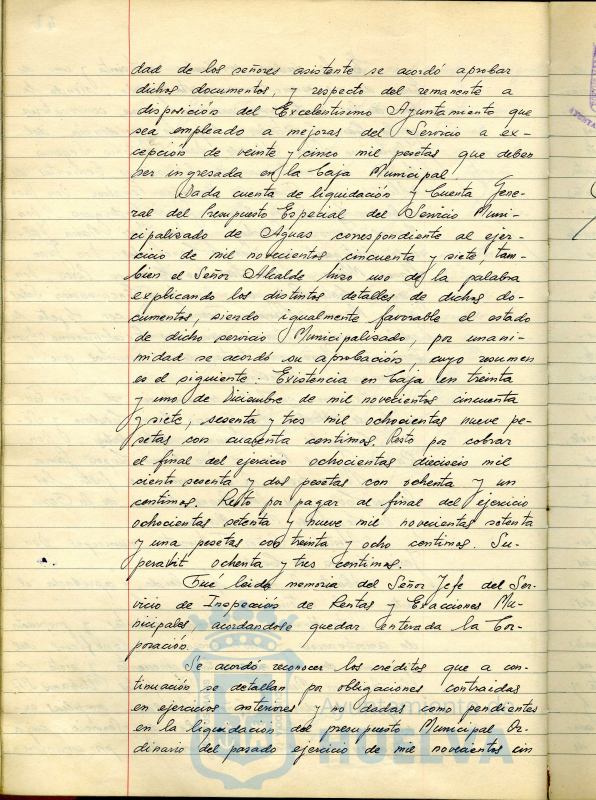 dad de los señores asistente se acordó aprobar
dichos documentos, y respecto del remanente a
disposición del Excelentísimo Ayuntamiento que
sea empleado a mejoras del Servicio a ex-
cepción de veinte y cinco mil pesetas que deben
ser ingresada en la Caja Municipal
Dada cuenta de liquidación y Cuenta Gene-
ral del Presupuesto Especial del Servicio Muni-
cipalizado de Aguas correspondiente al ejer-
cicio de mil novecientos cincuenta y siete, tam-
bien el Señor Alcalde hizo uso de la palabra
explicando los distintos detalles de dichos do-
cumentos, siendo igualmente favorable el estado
de dicho servicio Municipalizado, por unani-
midad se acordó su aprobación, cuyo resumen
es el siguiente: Existencia en Caja en treinta
y uno de Diciembre de mil novecientos cincuenta
y siete, sesenta y tres mil ochocientas nueve pe-
setas con cuarenta centimos. Resto por cobrar
el final del ejercicio ochocientas dieciseis mil
ciento sesenta y dos pesetas con ochenta y un
centimos. Resto por pagar al final del ejercicio
ochocientas setenta y nueve mil novecientas setenta
y una pesetas con treinta y ocho centimos. Su-
perabit ochenta y tres centimos.
Fué leida memoria del Señor Jefe del Ser-
vicio de Inspección de Rentas y Exacciones Mu-
nicipales acordandose quedar enterada la Cor-
poración.
Se acordó reconocer los créditos que a con-
tinuación se detallan por obligaciones contraidas
en ejercicios anteriores y no dadas como pendientes
en la liquidación del presupuesto Municipal Or-
dinario del pasado ejercicio de mil novecientos cin
HUELVA